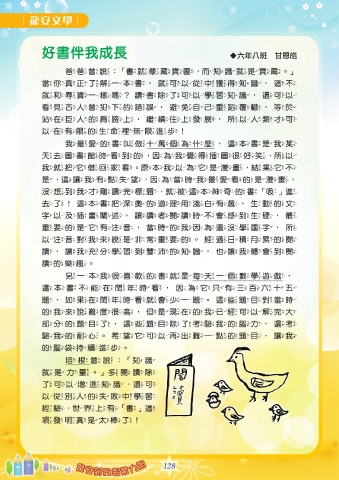 龍安文學
好書伴我成長
◆六年八班　甘恩皓
爸爸曾說：「書就像藏寶圖，而知識就是寶藏。」
當你真正了解一本書，就可以從中獲得知識，這不
就和尋寶一樣嗎？讀書除了可以學習知識，還可以
看見古人曾犯下的錯誤，避免自己重蹈覆轍，等於
站在巨人的肩膀上，繼續往上發展，所以人類才可
以在有限的生命裡無限進步！
我最愛的書叫做十萬個為什麼，這本書是我某
天去圖書館時看到的，因為我覺得插圖很好笑，所以
我就把它借回家看。原本我以為它是漫畫，結果它不
是，這讓我有點失望，因為當時我最愛看的是漫畫，
沒想到我才剛讀完標題，就被這本神奇的書「吸」進
去了！這本書把深奧的道理用淺白有趣、生動的文
字以及插畫闡述，讓讀者閱讀時不會感到生硬，最
重要的是它有注音，當時的我因為還沒學國字，所
以注音對我來說是非常重要的。經過日積月累的閱
讀，讓我充分學習到知識與智慧的沛然，也讓我體會到閱
讀的樂趣。
另一本我很喜歡的書就是每天一個數學遊戲，
這本書不能在閏年時看，因為它只有三百六十五
題，如果在閏年時看就會少一題。這些題目對當時
的我來說難度很高，但是現在的我已經可以解完大
部分的題目了，這些題目除了考驗我的腦力，還考
驗我的耐心。希望它可以再出難一點的題目，讓我
的腦袋持續進步。
培根曾說：「知識
就是力量。」多閱讀除
了可以增進知識，還可
以從別人的失敗中學習
經驗，世界上有「書」這
項發明真是太棒了！
閱讀
128